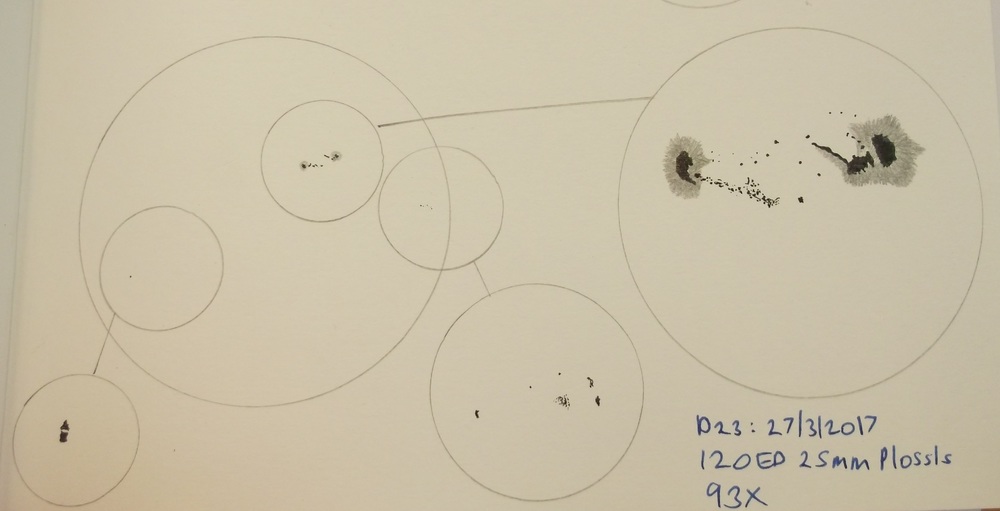 D23: 27/3/2017
120ED 25mm Plossls
93X